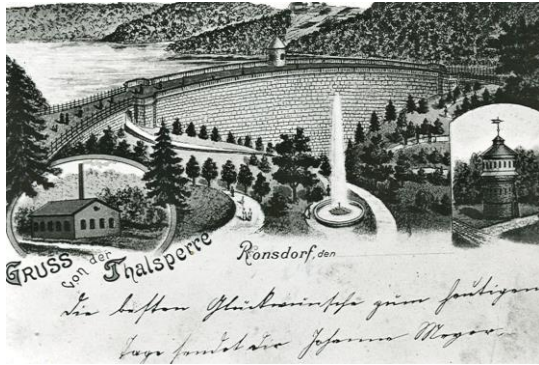 GRUSS von der Thalsperre
Ronsdorf, den
Die besten Glückwünsche zum heutigen
Tage sendet dir Johanna Meyer.